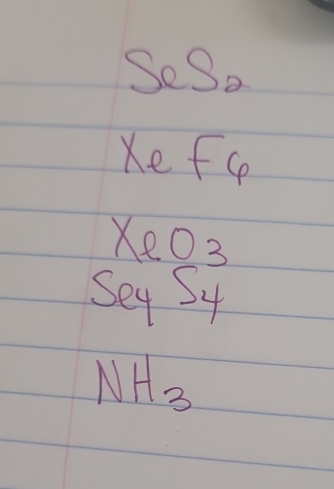 SeS2
XeF6
XeO3
Se4 S4
NH3